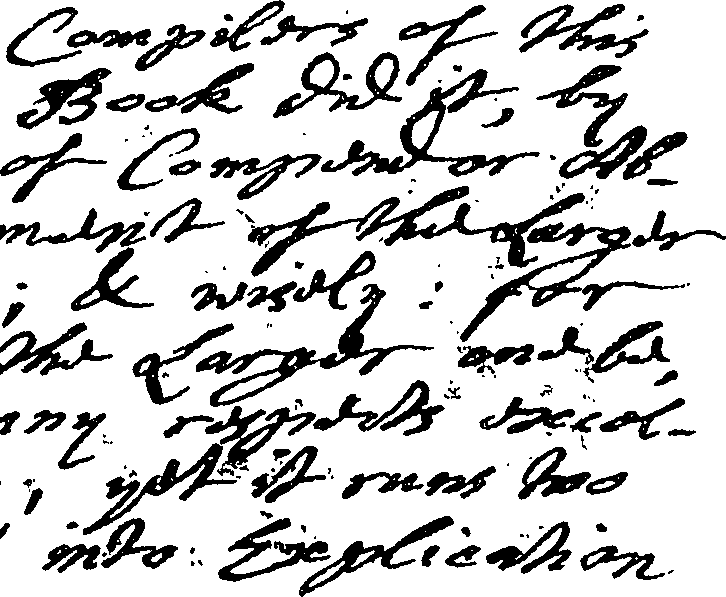 Compilers of this
Book did it, by
of Compend or Ab-
ment of the Larger
; & wisely : for
the Larger one be,
any respects excel-
, yet it runs too
into Explication